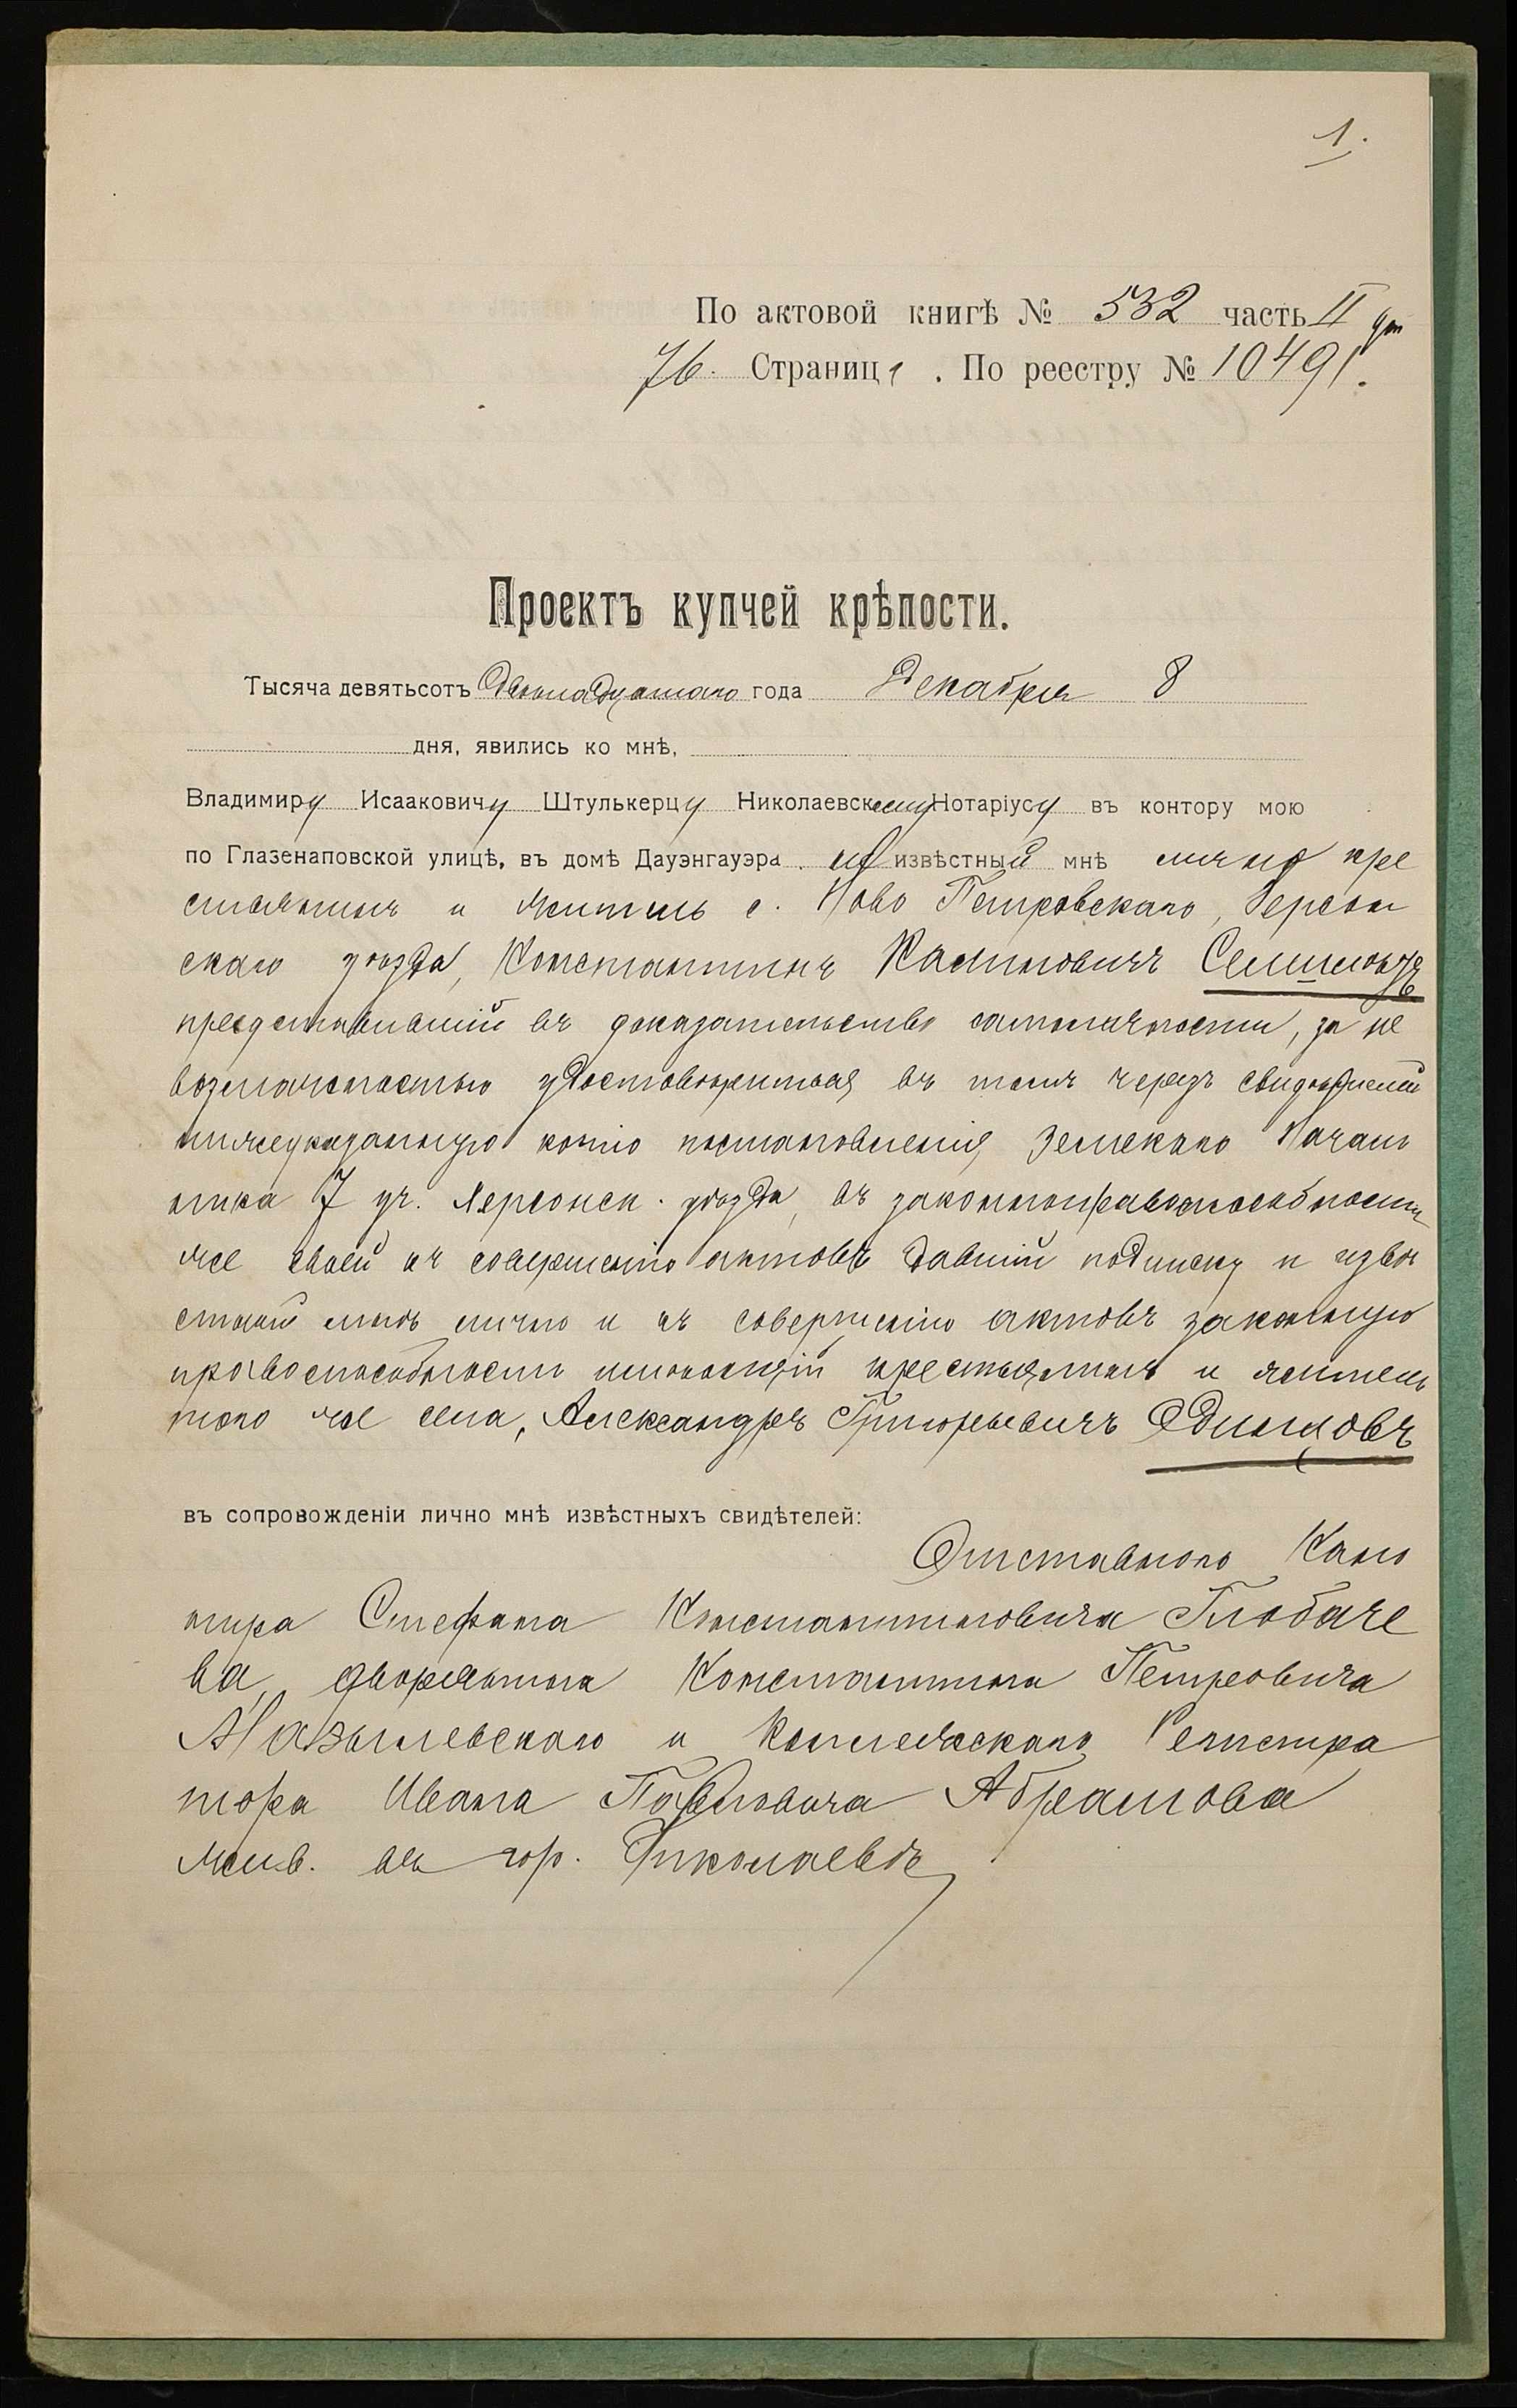 1.
По актовой книгѣ № 532 часть II
76. Страниц. По реестру № 10491.
Проектъ купчей крѣпости.
Тысяча девятьсотъ двѣнадцатаго года Декабря 8
дня, явились ко мнѣ,
Владимиру Исааковичу Штулькерцу Николаевскому Нотаріусу въ контору мою
по Глазенаповской улицѣ, въ домѣ Дауэнгауэра. неизвѣстный мнѣ лично кре
стьянинъ и житель с. Ново Петровскаго, Херсон
скаго уѣзда, Константинъ
представившій въ доказательство самоличности, за не
возможностью удостовѣриться въ томъ черезъ свидѣтелей
нижеуказанную копію постановленія Земскаго Началь
ника 7 уч. Херсонск. уѣзда, въ законноправоспособности
же своей къ совершенію актовъ давшій подписку и извѣ
стный мнѣ лично и къ совершенію актовъ законную
правоспособность имѣющій крестьянинъ и житель
того же села, Александръ Григорьевичъ Одинцовъ
въ сопровожденіи лично мнѣ извѣстныхъ свидѣтелей:
Отставного Кано
нира Стефана Константиновича Глобаче
ва, дворянина Константина Петровича
и Коллежскаго Регистра
тора Ивана Павловича Абрамова
жив. въ гор. Николаевѣ